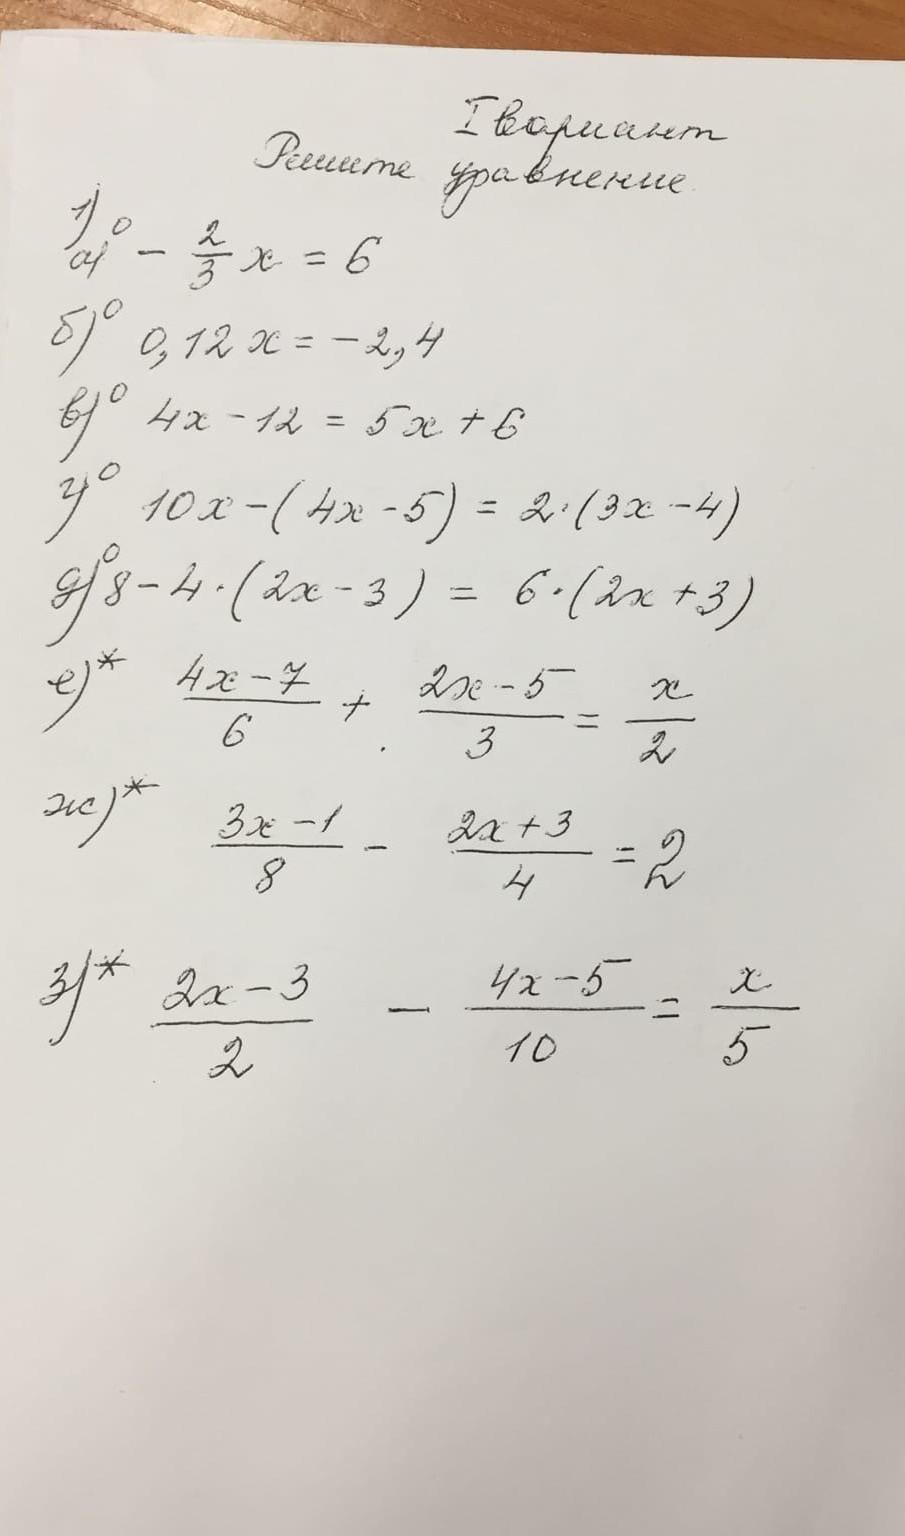 I вариант
Решите уравнение
1)
а)° - 2/3 x = 6
б)° 0,12x = -2,4
в)° 4x - 12 = 5x + 6
г)° 10x - (4x - 5) = 2·(3x - 4)
д)° 8 - 4·(2x - 3) = 6·(2x + 3)
е)* (4x - 7)/6 + (2x - 5)/3 = x/2
ж)* (3x - 1)/8 - (2x + 3)/4 = 2
з)* (2x - 3)/2 - (4x - 5)/10 = x/5